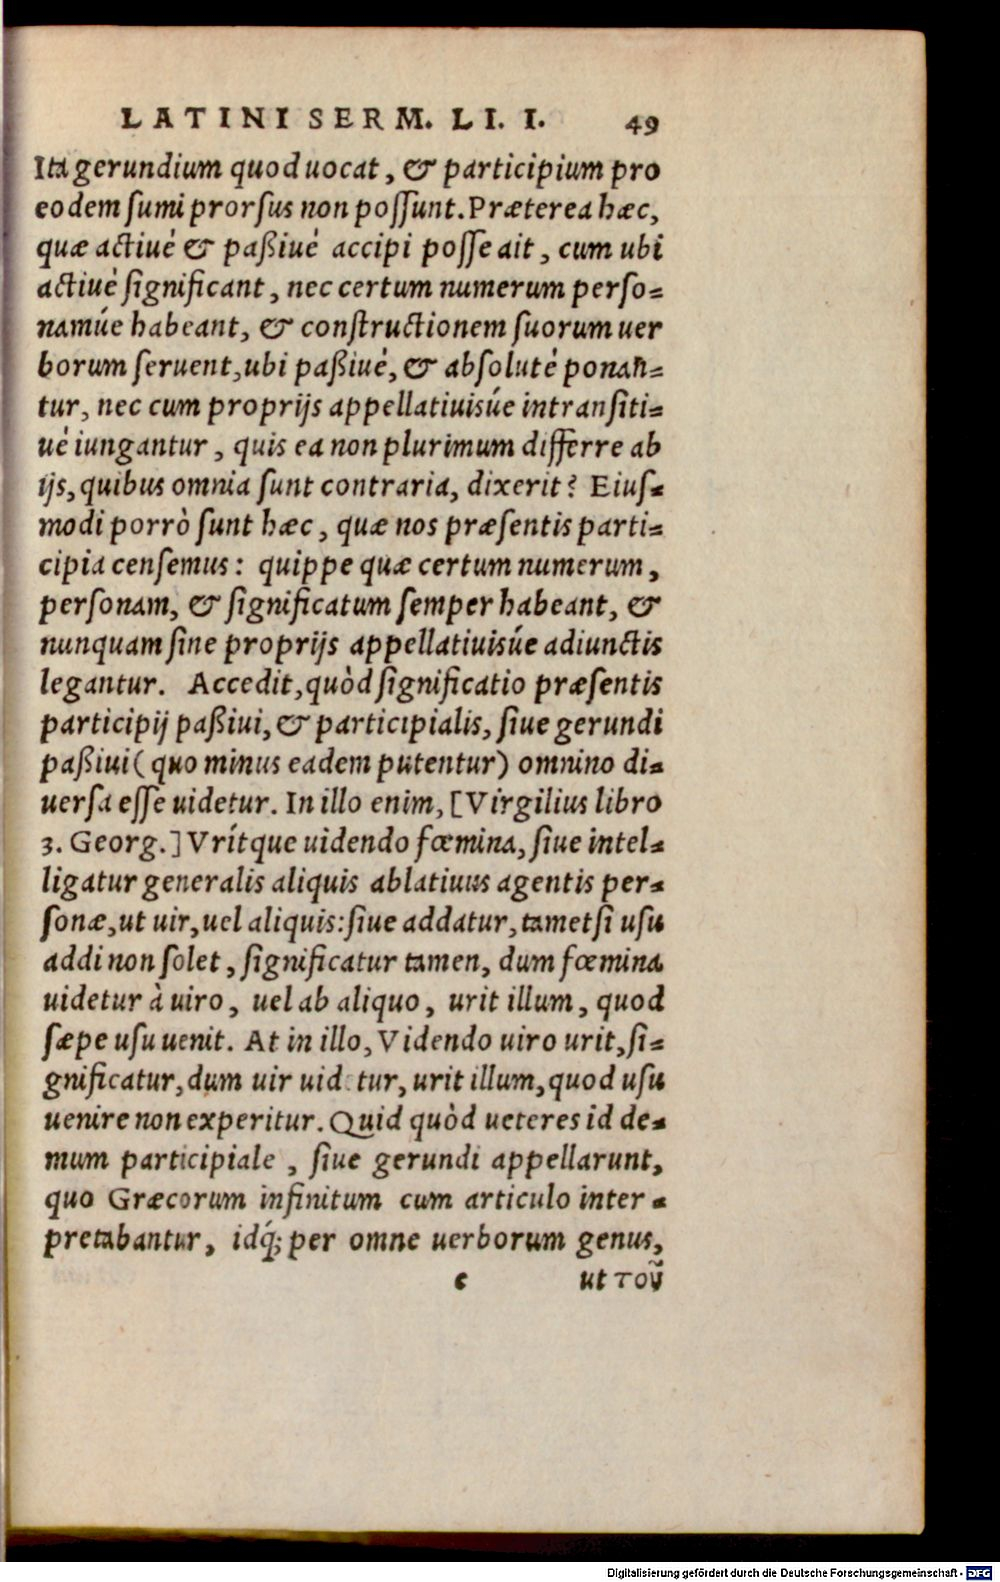 LATINI SERM. LI. I. 49
Ita gerundium quod uocat, & participium pro
eodem sumi prorsus non possunt. Præterea hæc,
quæ actiuè & paßiuè accipi posse ait, cum ubi
actiuè significant, nec certum numerum perso=
namúe habeant, & constructionem suorum uer
borum seruent, ubi paßiuè, & absolutè ponañ=
tur, nec cum proprijs appellatiuisúe intransiti=
uè iungantur, quis ea non plurimum differre ab
ijs, quibus omnia sunt contraria, dixerit? Eius=
modi porrò sunt hæc, quæ nos præsentis parti=
cipia censemus: quippe quæ certum numerum,
personam, & significatum semper habeant, &
nunquam sine proprijs appellatiuisúe adiunctis
legantur. Accedit, quòd significatio præsentis
participij paßiui, & participialis, siue gerundi
paßiui (quo minus eadem putentur) omnino di=
uersa esse uidetur. In illo enim, [Virgilius libro
3. Georg.] Vrítque uidendo fœmina, siue intel=
ligatur generalis aliquis ablatiuus agentis per=
sonæ, ut uir, uel aliquis: siue addatur, tametsi usu
addi non solet, significatur tamen, dum fœmina
uidetur à uiro, uel ab aliquo, urit illum, quod
sæpe usu uenit. At in illo, Videndo uiro urit, si=
gnificatur, dum uir uidetur, urit illum, quod usu
uenire non experitur. Quid quòd ueteres id de=
mum participiale, siue gerundi appellarunt,
quo Græcorum infinitum cum articulo inter=
pretabantur, idq́; per omne uerborum genus,
e ut τοῦ
Digitalisierung gefördert durch die Deutsche Forschungsgemeinschaft - DFG